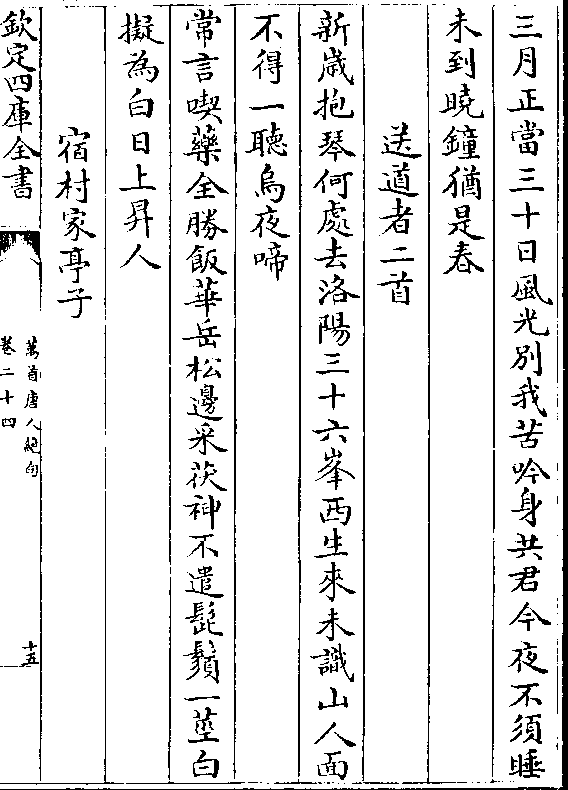 三月正當三十日風光別我苦吟身共君今夜不須睡
未到曉鐘猶是春
送道者二首
新歳抱琴何處去洛陽三十六峯西生來未識山人面
不得一聽烏夜啼
常言喫藥全勝飯華岳松邊采茯神不遣髭鬚一莖白
擬為白日上昇人
宿村家亭子
欽定四庫全書
萬首唐人絶句
卷二十四
十五